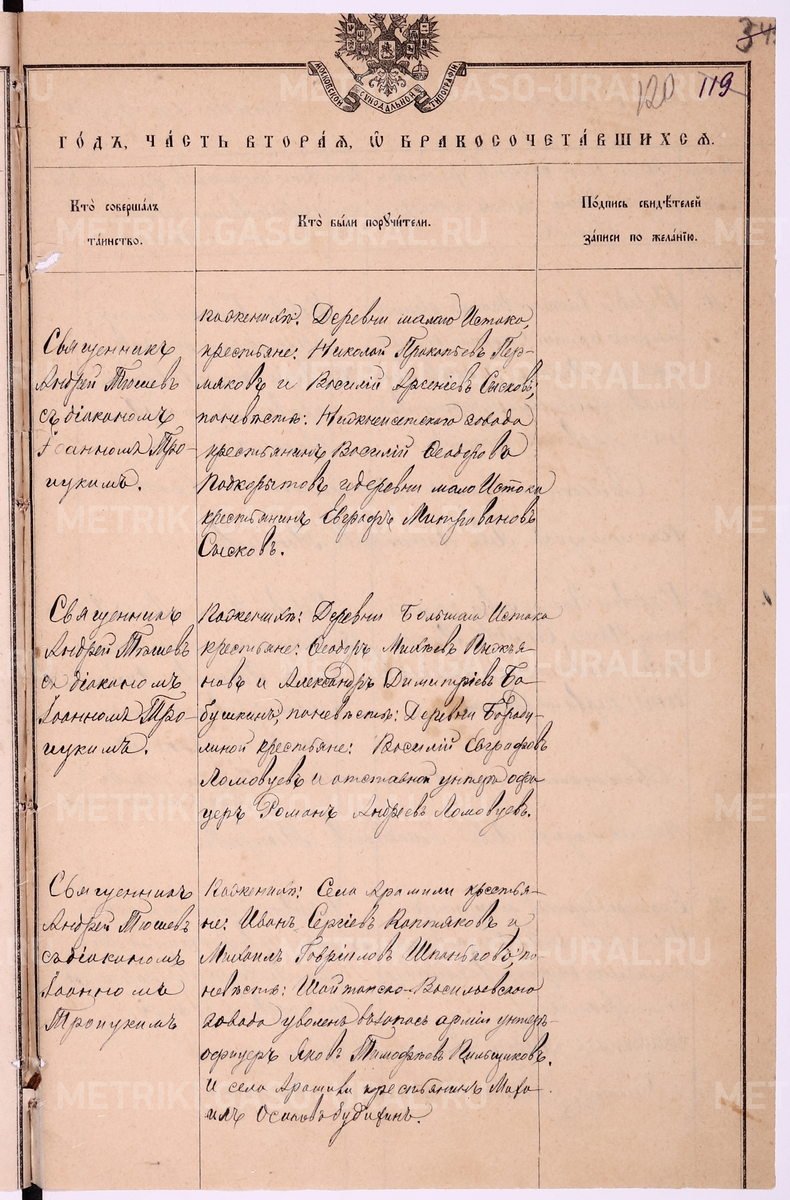 34
120 119
МОСКОВСКОЙ СѴНОДАЛЬНОЙ ТИПОГРАФІИ
ГО́ДЪ, ЧА́СТЬ ВТОРА́Я, Ѿ БРАКОСОЧЕТА́ВШИХСЯ.
Кто̀ соверша́лъ
та́инство.
Кто̀ бы́ли порꙋчи́тели.
По́дпись свидѣ́телей
за́писи по жела́нїю.
Священникъ
Андрей Тюшевъ
съ діакономъ
Іоанномъ Тро-
ицкимъ.
По женихѣ: Деревни малаго Истока,
крестьяне: Николай Прокопьевъ Пер-
мяковъ и Василій Арсеніевъ Сысковъ;
по невѣстѣ: Нижнеисетского завода
крестьянинъ Василій Ѳеодоровъ
Подкорытовъ и деревни мало Истока
крестьянинъ Евграфъ Митровановъ
Сысковъ.
Священникъ
Андрей Тюшевъ
съ діакономъ
Іоанномъ Тро-
ицкимъ.
По женихѣ: Деревни Большаго Истока
крестьяне: Ѳеодоръ Михѣевъ
новъ и Александръ Димитріевъ Ба-
бушкинъ, по невѣстѣ: Деревни Бороду-
линой крестьяне: Василій Евграфовъ
Ломовцевъ и отставной унтеръ офи-
церъ Романъ Андреевъ Ломовцевъ.
Священникъ
Андрей Тюшевъ
съ діакономъ
Іоанномъ
Троицкимъ
По женихѣ: Села Арамили крестья-
не: Иванъ Сергіевъ Коптяковъ и
Михаилъ Гавріиловъ Шпаньковъ, по
невѣстѣ: Шайтанско-Васильевского
завода уволенъ въ запасъ арміи унтеръ-
офицеръ Яковъ Тимофѣевъ Пильщиковъ.
и села Арамили крестьянинъ Миха-
илъ Осиповъ
METRIKI.GASO-URAL.RU